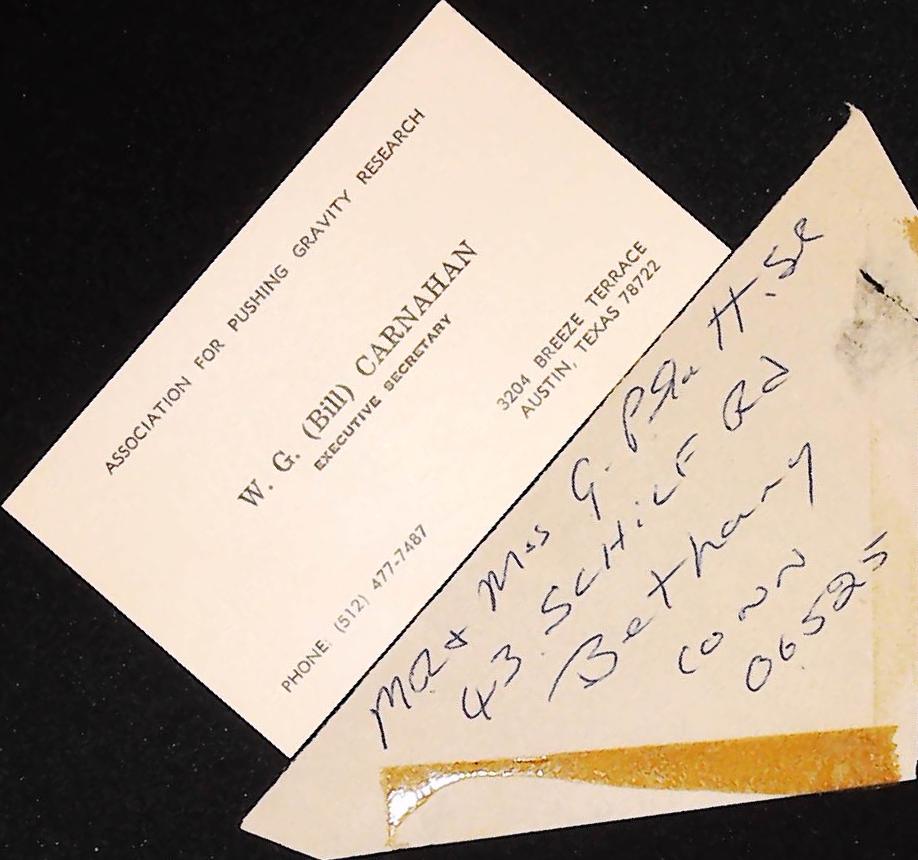 ASSOCIATION FOR PUSHING GRAVITY RESEARCH
W. G. (Bill) CARNAHAN
EXECUTIVE SECRETARY
3204 BREEZE TERRACE
AUSTIN, TEXAS 78722
PHONE: (512) 477-7487
MR & Mrs G. Platt. Sr
43 Bethany
CONN
06525